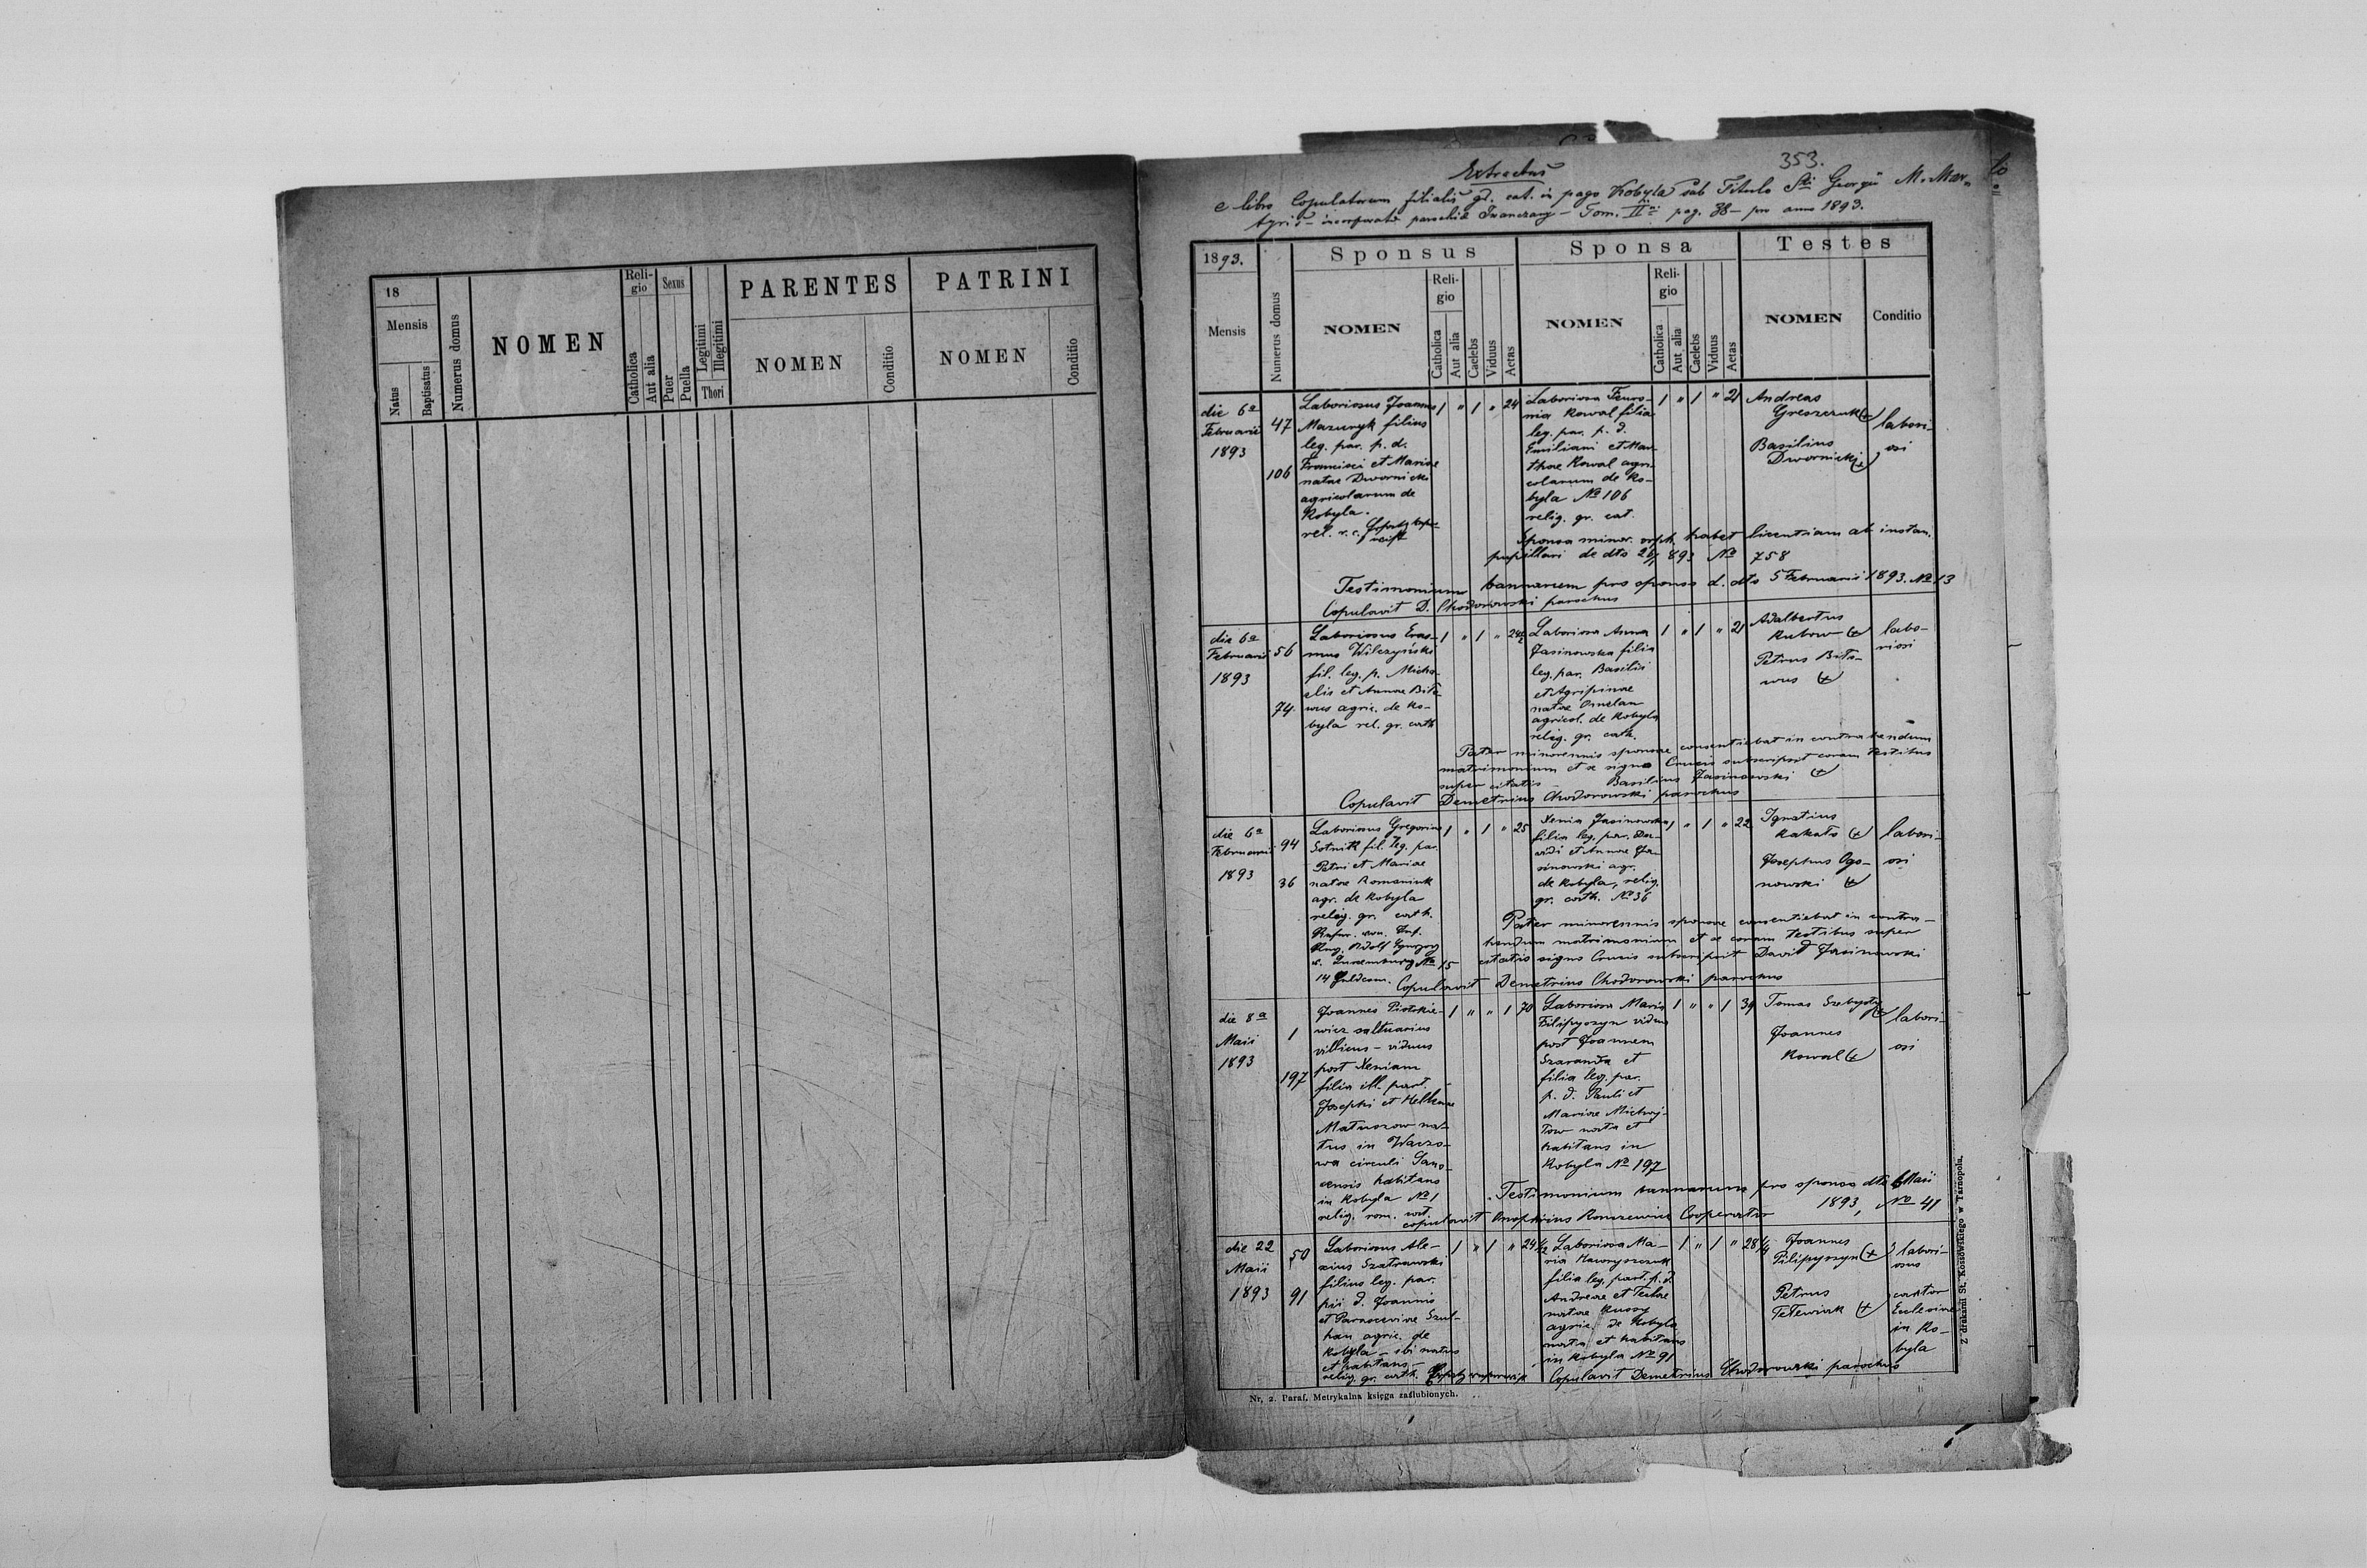 18
Mensis
Natus
Baptisatus
Numerus domus
NOMEN
Reli-
gio
Catholica
Aut alia
Sexus
Puer
Puella
Legitimi
Illegitimi
Thori
PARENTES
NOMEN
Conditio
PATRINI
NOMEN
Conditio
353.
Extractus
e libro Copulatorum filialis gr. cat. in pago Kobyla sub Titulo Sti Georgii M. Mar-
tyris - incorporatae parochiae Iwanczany - Tom. II pag. 38 - pro anno 1893.
1893.
Mensis
Numerus domus
Sponsus
NOMEN
Reli-
gio
Catholica
Aut alia
Caelebs
Viduus
Aetas
Sponsa
NOMEN
Reli-
gio
Catholica
Aut alia
Caelebs
Viduus
Aetas
Testes
NOMEN
Conditio
die 6a
Februarii
1893
47
106
Laboriosus Joannes
Mazuryk filius
leg. par. p. d.
Francisci et Mariae
natae Dwornicki
agricolarum de
Kobyla.
rel. r. c.
1 " 1 " 24
Laboriosa Feuro-
nia Kowal filia
leg. par. p. d.
Emiliani et Mar-
thae Kowal agri-
colarum de Ko-
byla No 106
relig. gr. cat.
1 " 1 " 21
Andreas
Greszczuk (+)
Basilius
Dwornicki (+)
labori-
osi
Sponsa minor. orph. habet licentiam ab instan.
pupillari de dto 893 No 758
Testimonium bannorum pro sponso d. dto 5 Februarii 1893. No 13
Copulavit D. Chodorowski parochus
die 6a
Februarii
1893
56
74
Laboriosus Eras-
mus Wilczyński
fil. leg. p. Micha-
elis et Annae Bita-
wus agric. de Ko-
byla rel. gr. cath.
1 " 1 " 24½
Laboriosa Anna
Jasinowska filia
leg. par. Basilii
et Agripinae
natae Omelan
agricol. de Kobyla
relig. gr. cath.
1 " 1 " 21
Adalbertus
Kubow (+)
Petrus Bita-
wus (+)
labo-
riosi
Pater minorennis sponsae consentiebat in contrahendum
matrimonium et se signo Crucis subscripsit coram testibus
super citatis Basilius Jasinowski (+)
Copulavit Demetrius Chodorowski parochus
die 6a
Februarii
1893
94
36
Laboriosus Gregorius
Sotnik fil. leg. par.
Petri et Mariae
natae Romaniuk
agr. de Kobyla
relig. gr. cath.
1 " 1 " 25
Xenia Jasinowska
filia leg. par. Da-
vidi et Annae Ja-
sinowski agr.
de Kobyla, relig.
gr. cath. No 36
1 " 1 " 22
Ignatius
Kakata (+)
Josephus Ogo-
nowski (+)
labori-
osi
Pater minorennis sponsae consentiebat in contra-
hendum matrimonium et se coram testibus super
citatis signo Crucis subscripsit David Jasinowski
Copulavit Demetrius Chodorowski parochus
die 8a
Maii
1893
1
197
Joannes Piotrkie-
wicz saltuarius
villicus - viduus
post Xeniam
filia ill. part.
Josephi et Hellenae
Matuszow na-
tus in
circuli Sano-
censis habitans
in Kobyla No 1
relig. rom. cat.
1 " " 1 70
Laboriosa Maria
Filipyszyn vidua
post Joannem
Szaranda et
filia leg. par.
p. d. Pauli et
Mariae
nata et
habitans in
Kobyla No 197
1 " " 1 34
Tomas (+)
Joannes
Kowal (+)
labori-
osi
Testimonium bannorum pro sponso dto 6 Maii
1893, No 41
copulavit Onophrius Cooperator
die 22
Maii
1893
50
91
Laboriosus Ale-
xius Szatrawski
filius leg. par.
pii d. Joannis
et Parasceviae Szul-
han agric. de
Kobyla - ibi natus
et habitans -
relig. gr. cath.
1 " 1 " 24½
Laboriosa Ma-
ria Hawryszczuk
filia leg. part. p. d.
Andreae et Teclae
natae
agric. de Kobyla
nata et habitans
in Kobyla No 91
1 " 1 " 28¼
Joannes
Pilipyszyn (+)
Petrus
Teteniuk (+)
labori-
osus
cantor
Ecclesiae
in Ko-
byla
Copulavit Demetrius Chodorowski parochus
Nr. 2. Paraf. Metrykalna księga zaślubionych.
Z drukarni St. Kossowskiego w Tarnopolu.